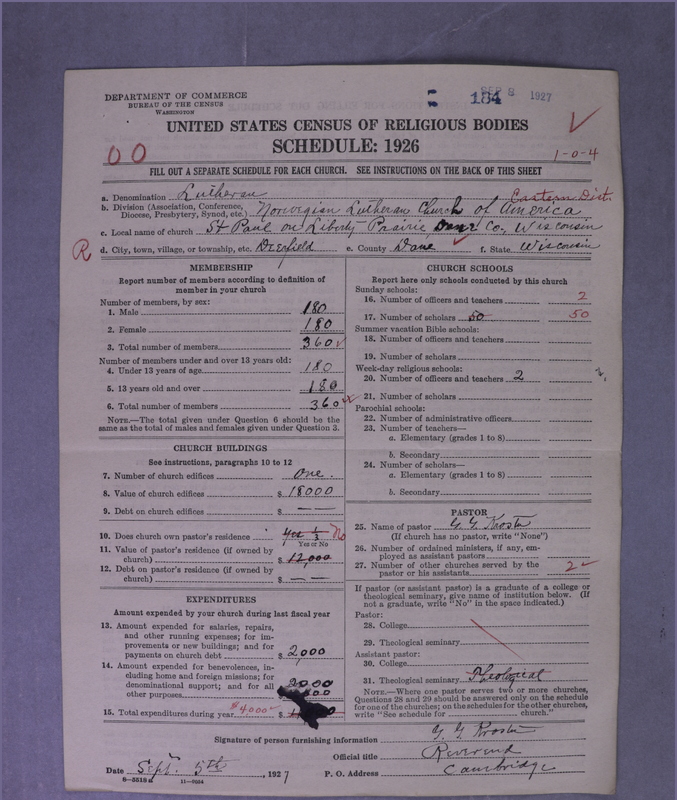 DEPARTMENT OF COMMERCE
BUREAU OF THE CENSUS
WASHINGTON
184
SEP 8 1927
UNITED STATES CENSUS OF RELIGIOUS BODIES
SCHEDULE: 1926
00
1-0-4
FILL OUT A SEPARATE SCHEDULE FOR EACH CHURCH. SEE INSTRUCTIONS ON THE BACK OF THIS SHEET
a. Denomination Lutheran Eastern Dist.
b. Division (Association, Conference,
Diocese, Presbytery, Synod, etc.) Norwegian Lutheran Church of America
c. Local name of church St Paul on Liberty Prairie, Dane Co. Wisconsin
R
d. City, town, village, or township, etc. Deerfield e. County Dane f. State Wisconsin
MEMBERSHIP
Report number of members according to definition of
member in your church
Number of members, by sex:
1. Male 180
2. Female 180
3. Total number of members 360
Number of members under and over 13 years old:
4. Under 13 years of age 180
5. 13 years old and over 180
6. Total number of members 360
NOTE.—The total given under Question 6 should be the
same as the total of males and females given under Question 3.
CHURCH BUILDINGS
See instructions, paragraphs 10 to 12
7. Number of church edifices One
8. Value of church edifices $ 18000
9. Debt on church edifices $ — —
10. Does church own pastor's residence Yes 1/3 No
Yes or No
11. Value of pastor's residence (if owned by
church) $ 12,000
12. Debt on pastor's residence (if owned by
church) $ — —
EXPENDITURES
Amount expended by your church during last fiscal year
13. Amount expended for salaries, repairs,
and other running expenses; for im-
provements or new buildings; and for
payments on church debt $ 2,000
14. Amount expended for benevolences, in-
cluding home and foreign missions; for
denominational support; and for all
other purposes 2000
15. Total expenditures during year $4000 $
CHURCH SCHOOLS
Report here only schools conducted by this church
Sunday schools:
16. Number of officers and teachers 2
17. Number of scholars 50 50
Summer vacation Bible schools:
18. Number of officers and teachers
19. Number of scholars
Week-day religious schools:
20. Number of officers and teachers 2
21. Number of scholars
Parochial schools:
22. Number of administrative officers
23. Number of teachers—
a. Elementary (grades 1 to 8)
b. Secondary
24. Number of scholars—
a. Elementary (grades 1 to 8)
b. Secondary
PASTOR
25. Name of pastor G. G. Krostu
(If church has no pastor, write "None")
26. Number of ordained ministers, if any, em-
ployed as assistant pastors
27. Number of other churches served by the
pastor or his assistants 2
If pastor (or assistant pastor) is a graduate of a college or
theological seminary, give name of institution below. (If
not a graduate, write "No" in the space indicated.)
Pastor:
28. College
29. Theological seminary
Assistant pastor:
30. College
31. Theological seminary Theological
NOTE.—Where one pastor serves two or more churches,
Questions 28 and 29 should be answered only on the schedule
for one of the churches; on the schedules for the other churches,
write "See schedule for church."
Signature of person furnishing information G. G. Krostu
Official title Reverend
Date Sept. 5th, 1927 P. O. Address Cambridge